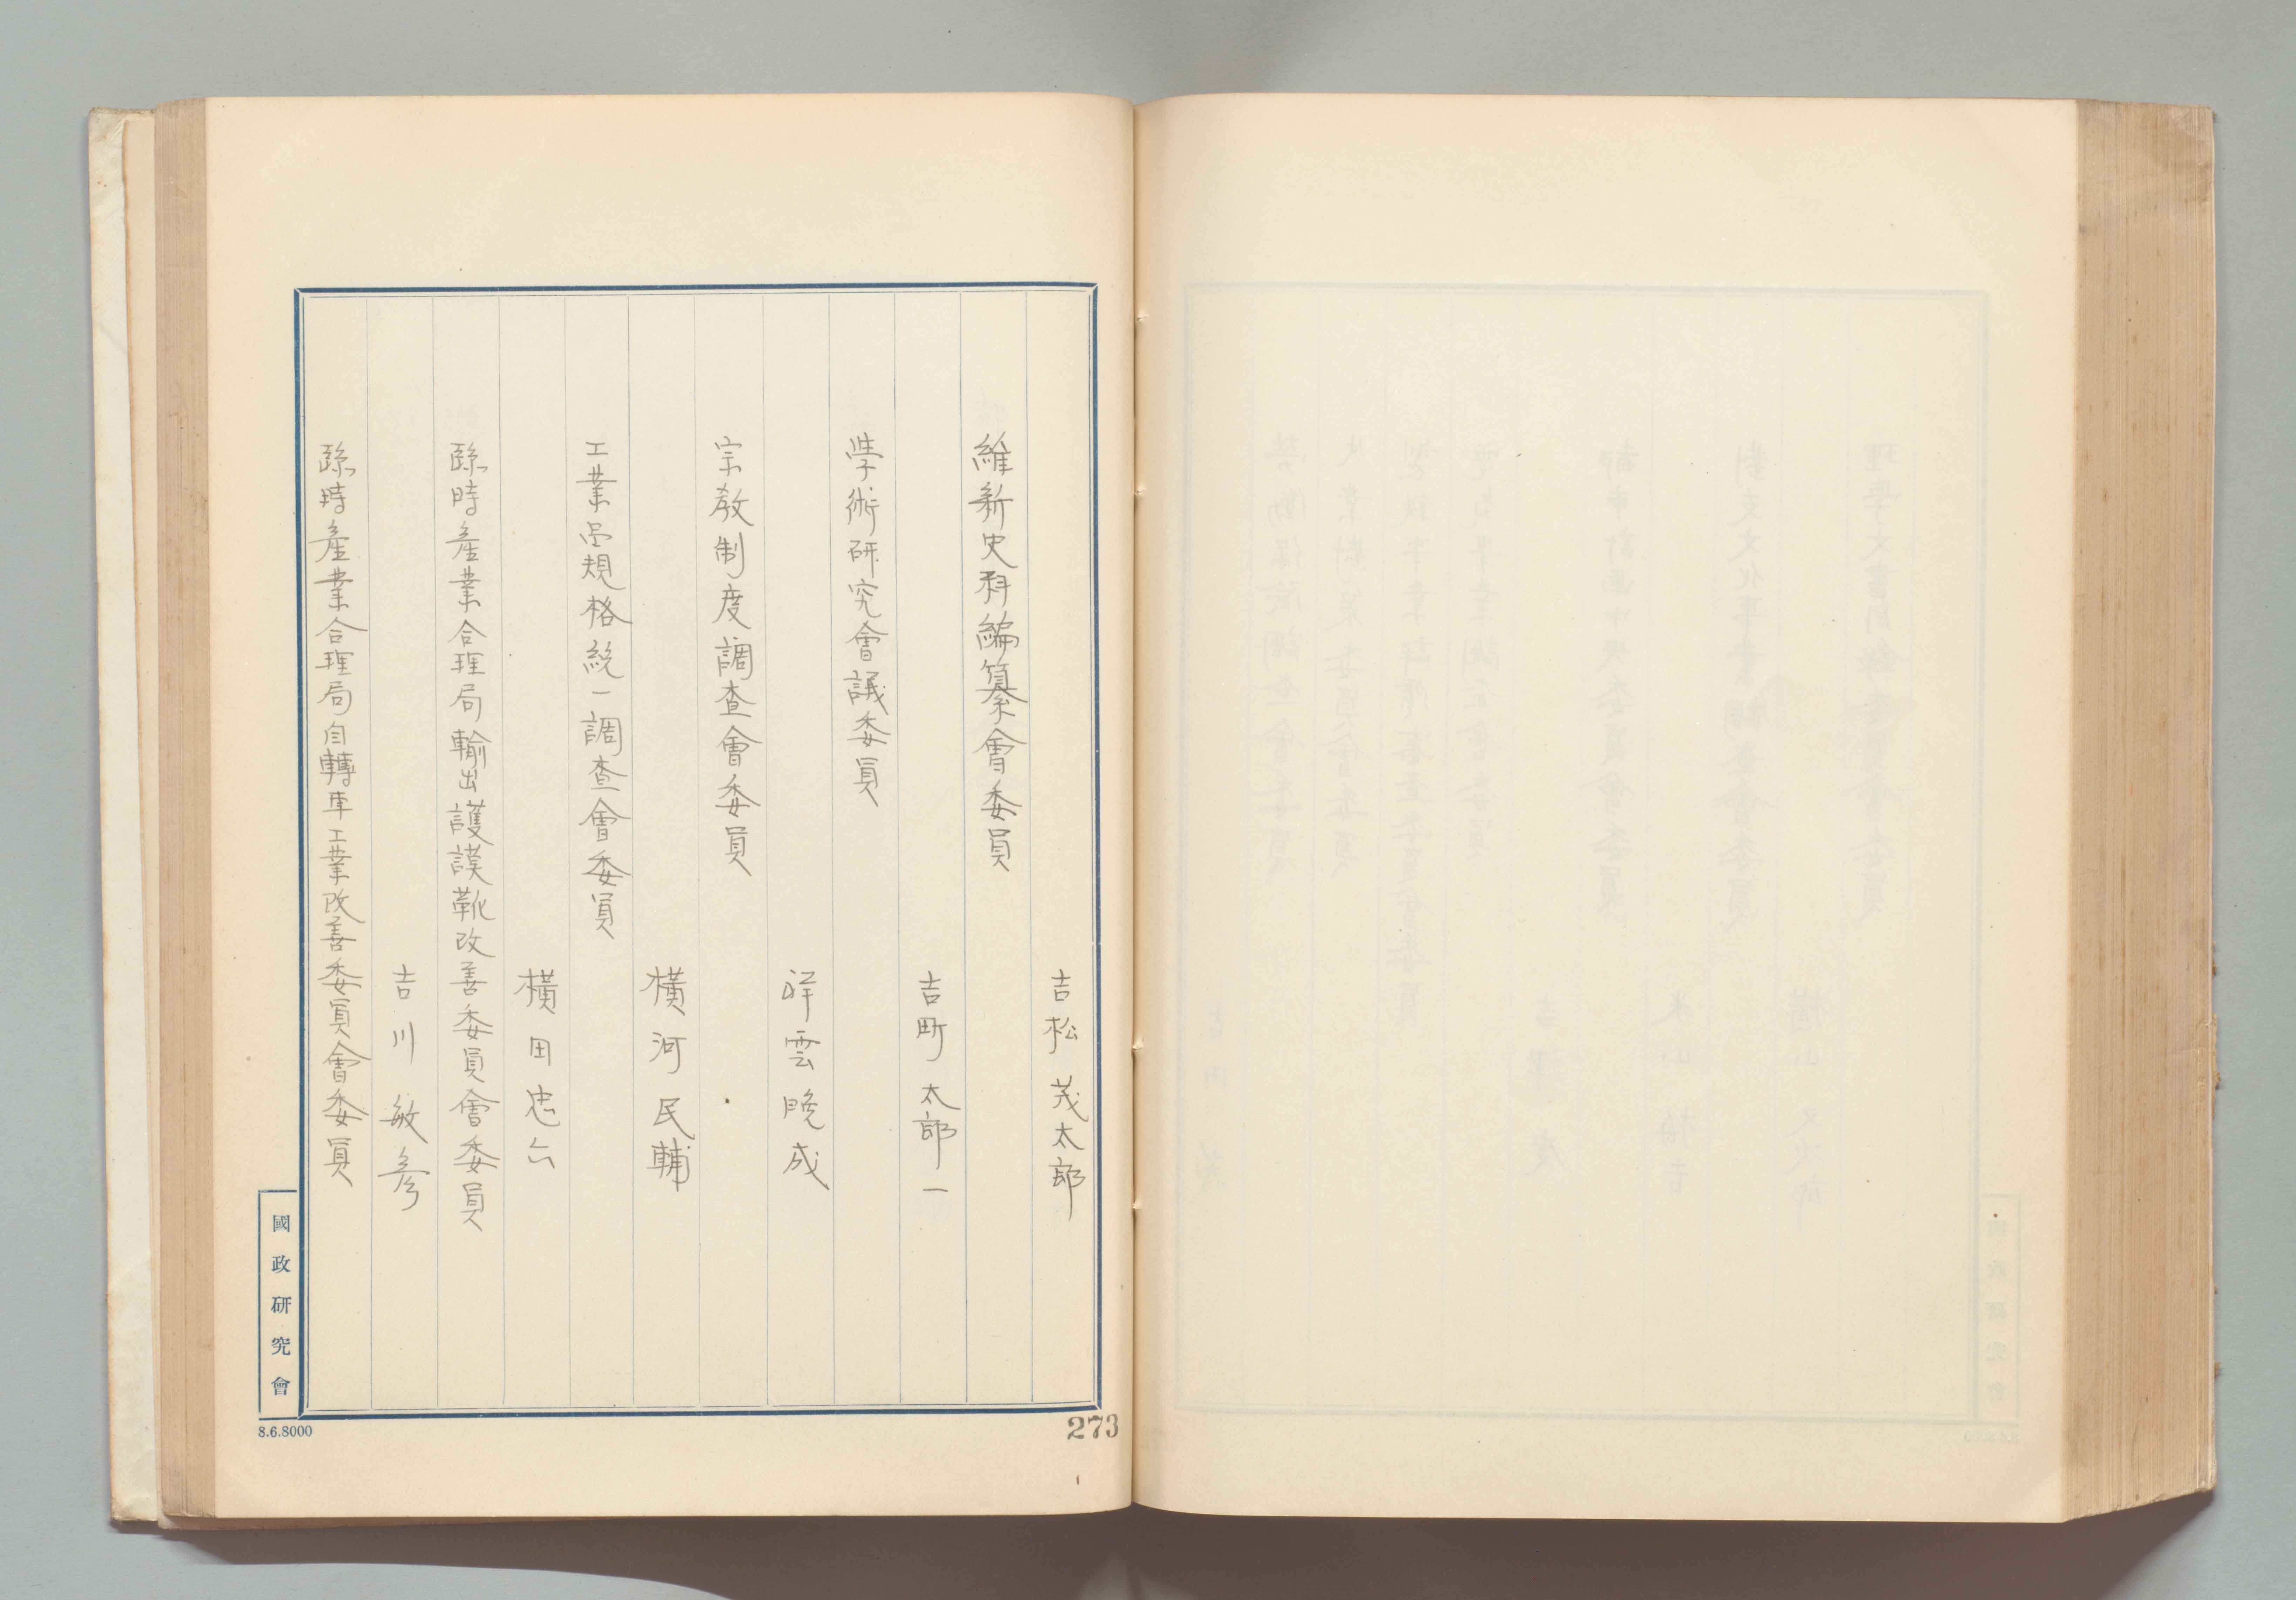 吉松茂太郎
維新史料編纂會委員
吉町太郎一
學術研究會議委員
祥雲晩成
宗教制度調査會委員
横河民輔
工業品規格統一調査會委員
横田忠六
臨時産業合理局輸出護謨靴改善委員會委員
吉川敏彦
臨時産業合理局自轉車工業改善委員會委員
國政研究會
8.6.8000
273